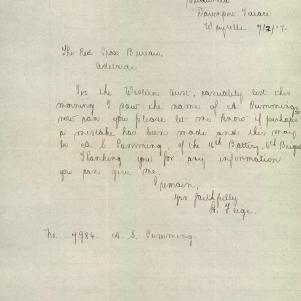 Davenport Terrace
Wayville 9/2/17.
The Red Cross Bureau,
Adelaide
In the Western Aust, casualty list this
morning I saw the name of A. Cummings,
now can you please let me know if perhaps
a mistake has been made and this may
be A. S. Cumming, of the 16th Battery, 6th Brigade
Thanking you for any information
you can give me.
I remain,
yrs faithfully
No. 7984. A. S. Cumming